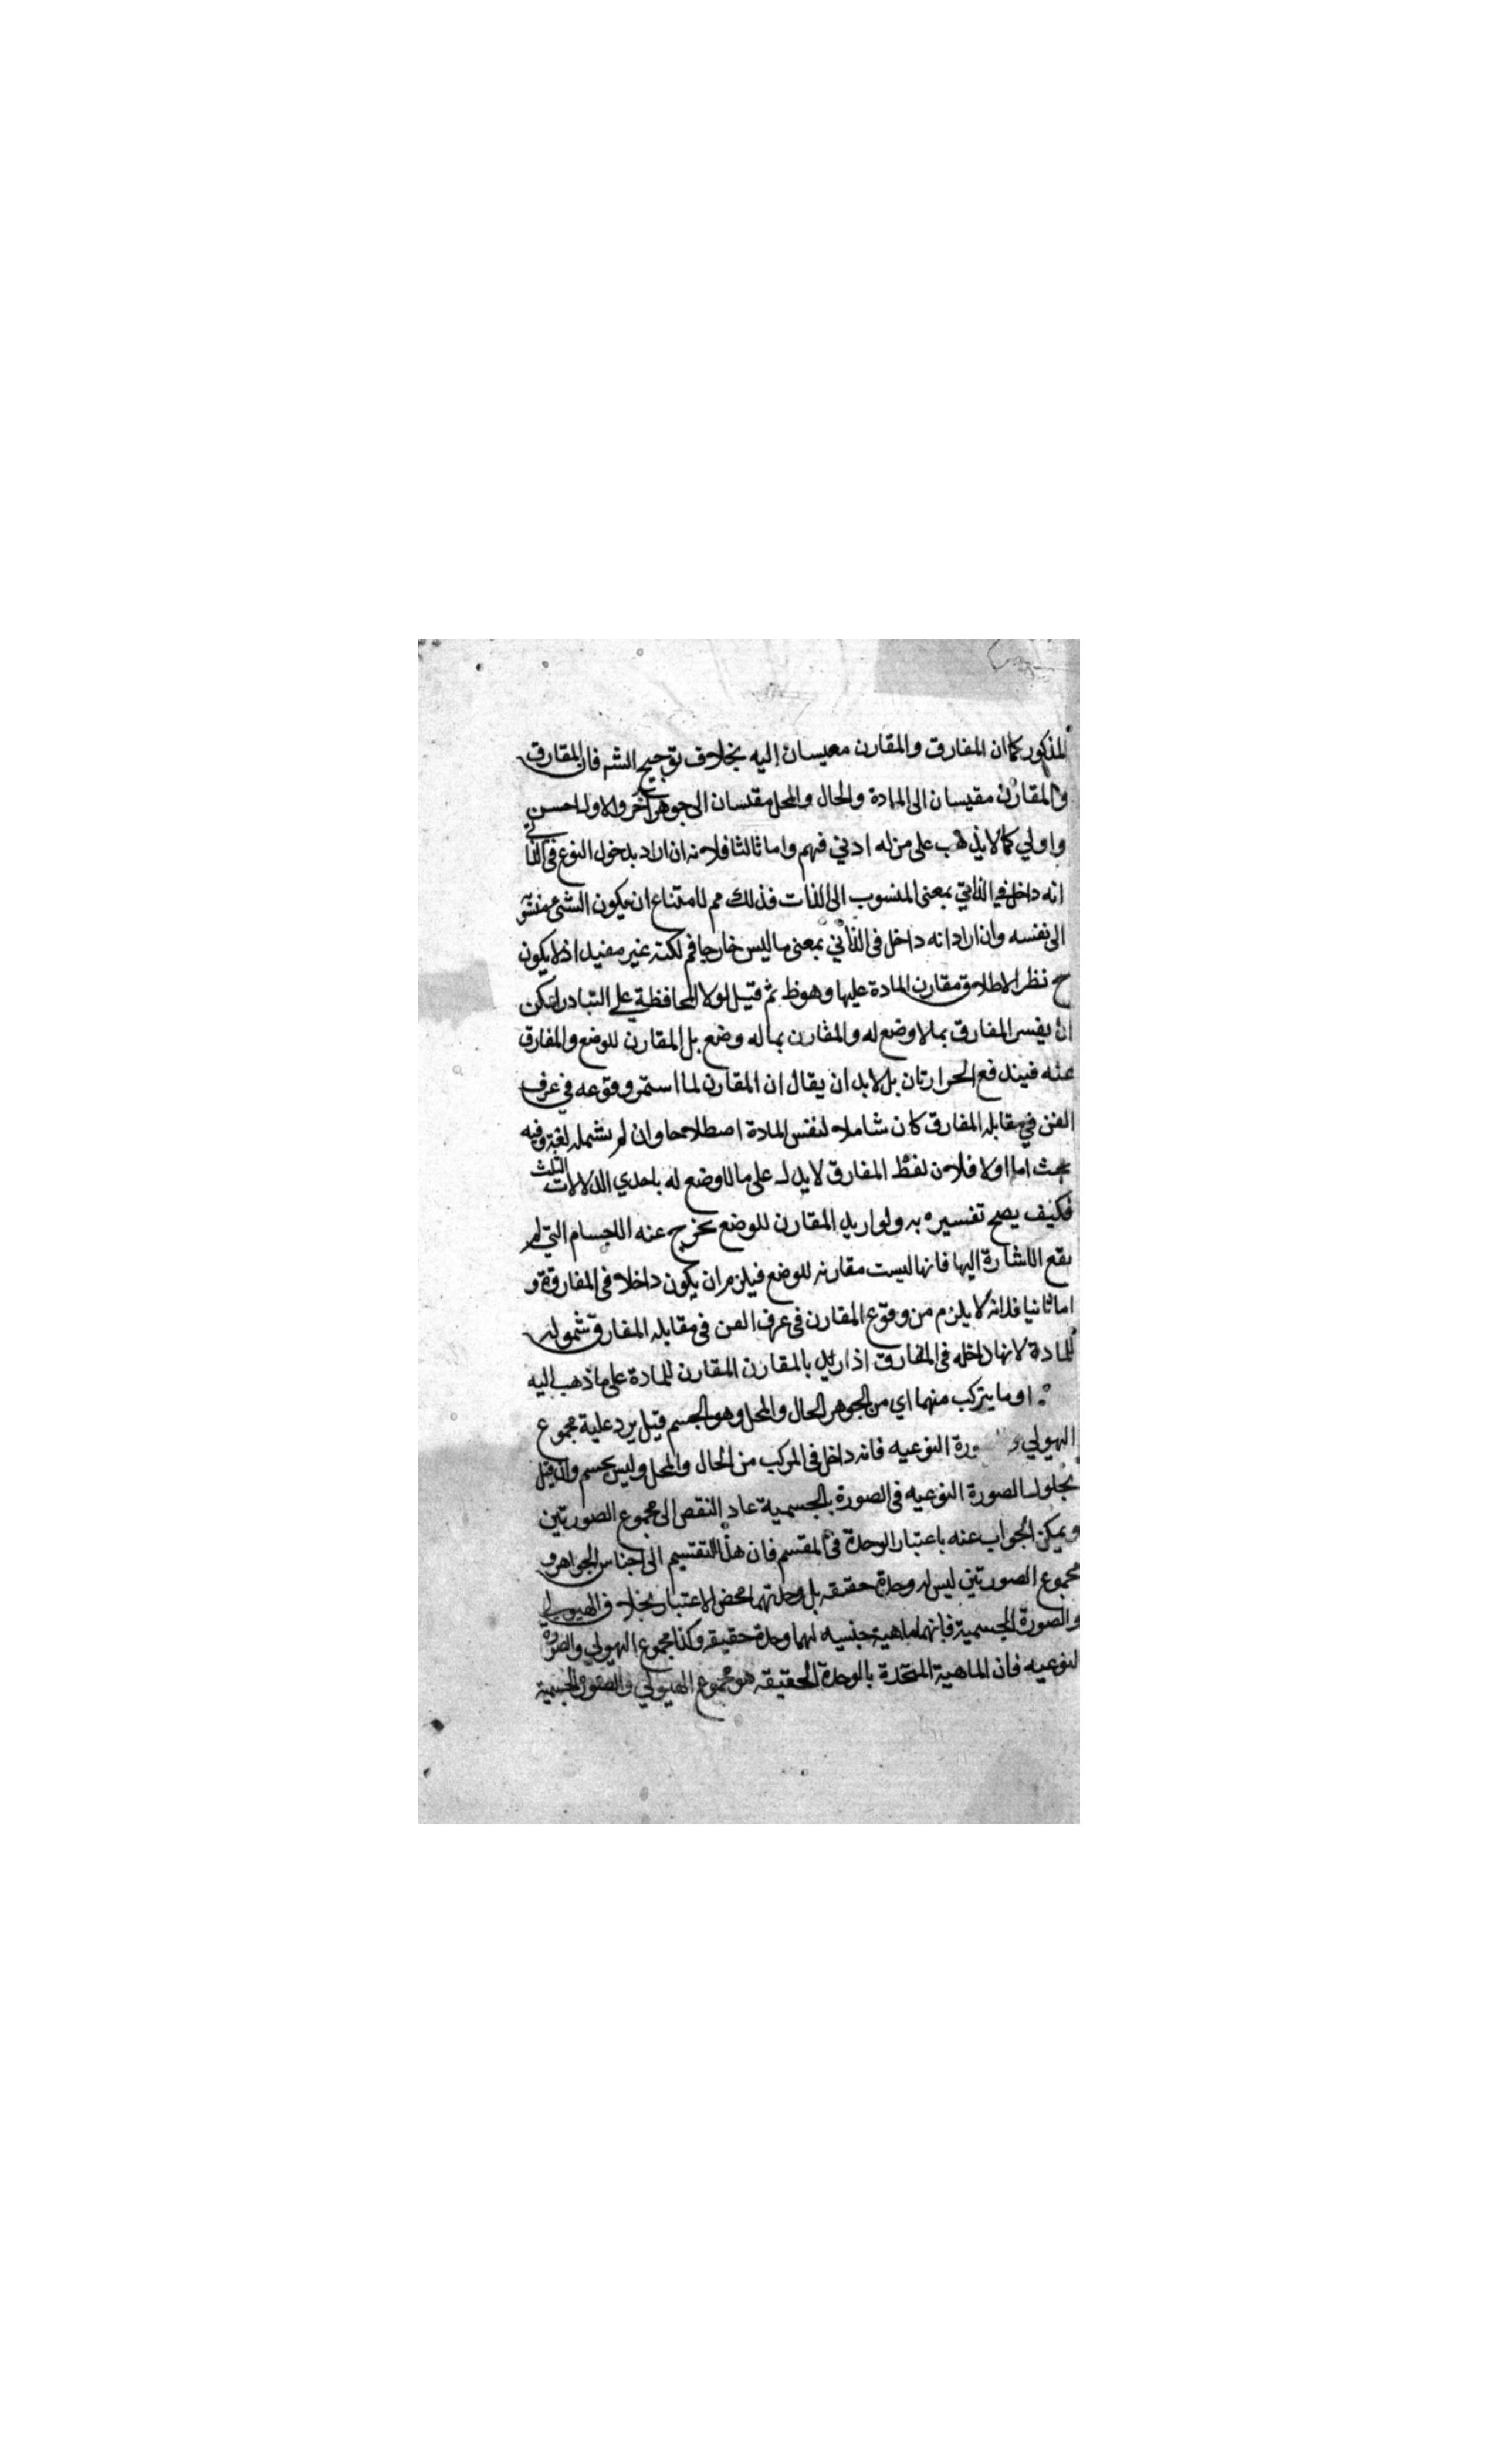 المذكور كما ان المفارق والمقارن مقيسان اليه بخلاف توجيح الشه فان المفارق
والمقارن مقيسان الى المادة والحال والمحل مقيسان الى جوهر آخر والاول احسن
واولي كما لا يذهب على من له ادني فهم واما ثالثا فلانه ان اراد بدخول النوع في الذاتي
انه داخل في الذاتي بمعنى المنسوب الى الذات فذلك مم لامتناع ان يكون الشئ
الى نفسه وان اراد انه داخل في الذاتي بمعنى ما ليس خارجا فم لكنه غير مفيد اذ لا يكون
ح نظر الاطلاق مقارن المادة عليها وهو ظ ثم قيل لولا المحافظة على التبادر امكن
ان يفسر المفارق بما لا وضع له والمقارن بما له وضع بل المقارن للوضع والمفارق
عنه فيندفع الحرارتان بل لابد ان يقال ان المقارن لما استمر وقوعه في عرف
الفن في مقابله المفارق كان شاملا لنفس المادة اصطلاحا وان لم يشمله لغة وفيه
بحث اما اولا فلان لفظ المفارق لا يدل على ما لا وضع له باحدي الدلالات الثلث
فكيف يصح تفسيره به ولو اريد المقارن للوضع يخرج عنه الاجسام التي لم
يقع الاشارة اليها فانها ليست مقارنه للوضع فيلزم ان يكون داخلا في المفارقة و
اما ثانيا فلانه لا يلزم من وقوع المقارن في عرف الفن في مقابله المفارق شموله
للمادة لانها داخله في المفارق اذ اريد بالمقارن المقارن للمادة على ما ذهب اليه
او ما يتركب منهما اي من الجوهر الحال والمحل وهو الجسم قيل يرد عليه مجموع
الهيولي و ورة النوعيه فانه داخل في المركب من الحال والمحل وليس بجسم وان قيل
بحلول الصورة النوعيه في الصورة الجسمية عاد النقص الى مجموع الصورتين
ويمكن الجواب عنه باعتبار الوحدة في المقسم فان هذا التقسيم الى اجناس الجواهر و
مجموع الصورتين ليس له وحدة حقيقه بل وحدتهما محض الاعتبار بخلاف الهيولي
والصورة الجسمية فانهما ماهية جنسيه لهما وحدة حقيقه وكذا مجموع الهيولي والصورة
النوعيه فان الماهية المتحدة بالوحدة الحقيقه هو مجموع الهيولي والصورة الجسمية